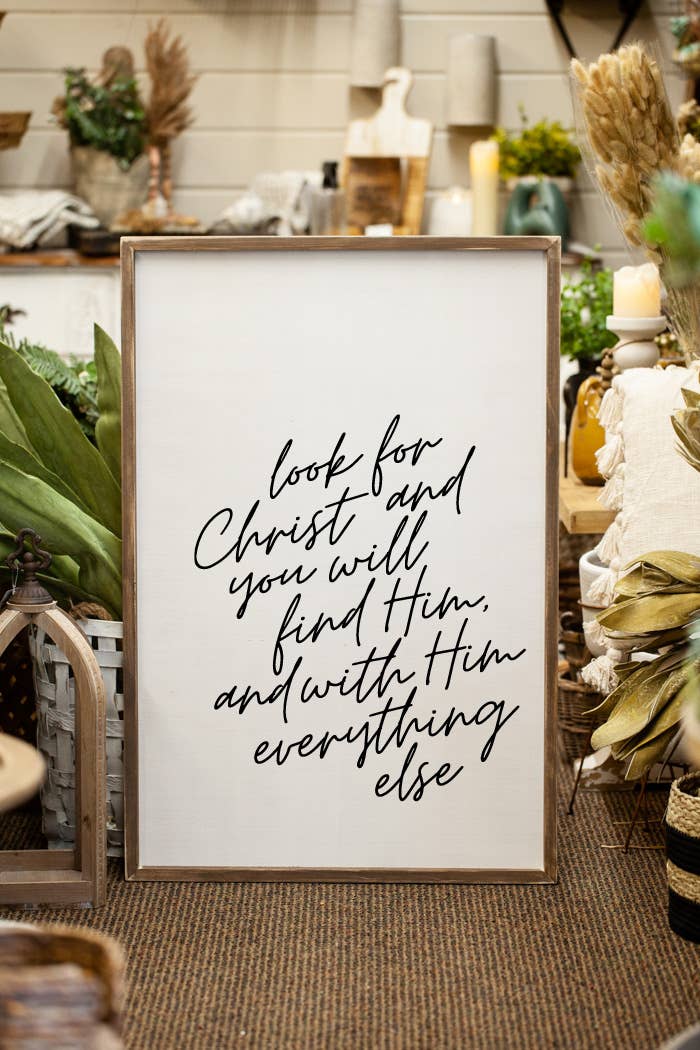 look for
Christ and
you will
find Him,
and with Him
everything
else